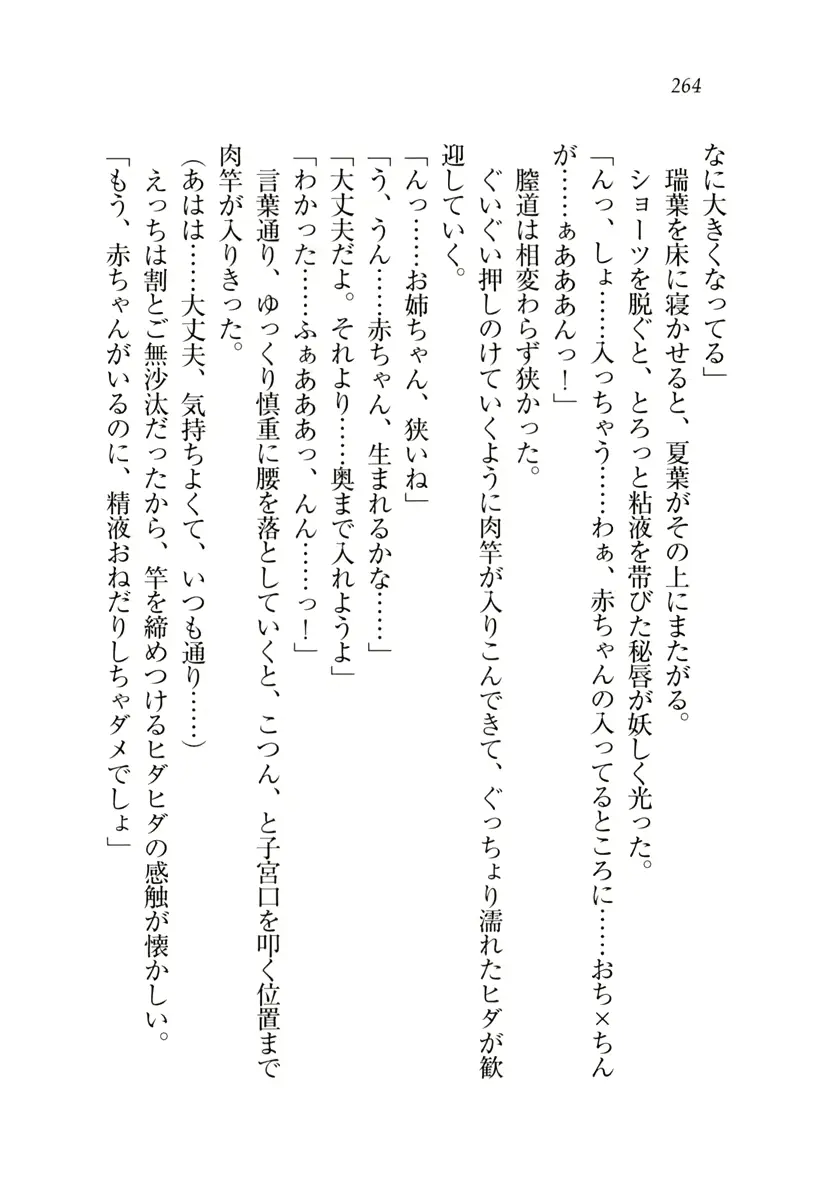 264
なに大きくなってる」
瑞葉を床に寝かせると、夏葉がその上にまたがる。
ショーツを脱ぐと、とろっと粘液を帯びた秘唇が妖しく光った。
「んっ、しょ……入っちゃう……わぁ、赤ちゃんの入ってるところに……おち×ちん
が……ぁあああんっ！」
膣道は相変わらず狭かった。
ぐいぐい押しのけていくように肉竿が入りこんできて、ぐっちょり濡れたヒダが歓
迎していく。
「んっ……お姉ちゃん、狭いね」
「う、うん……赤ちゃん、生まれるかな……」
「大丈夫だよ。それより……奥まで入れようよ」
「わかった……ふぁあああっ、んん……っ！」
言葉通り、ゆっくり慎重に腰を落としていくと、こつん、と子宮口を叩く位置まで
肉竿が入りきった。
（あはは……大丈夫、気持ちよくて、いつも通り……）
えっちは割とご無沙汰だったから、竿を締めつけるヒダヒダの感触が懐かしい。
「もう、赤ちゃんがいるのに、精液おねだりしちゃダメでしょ」